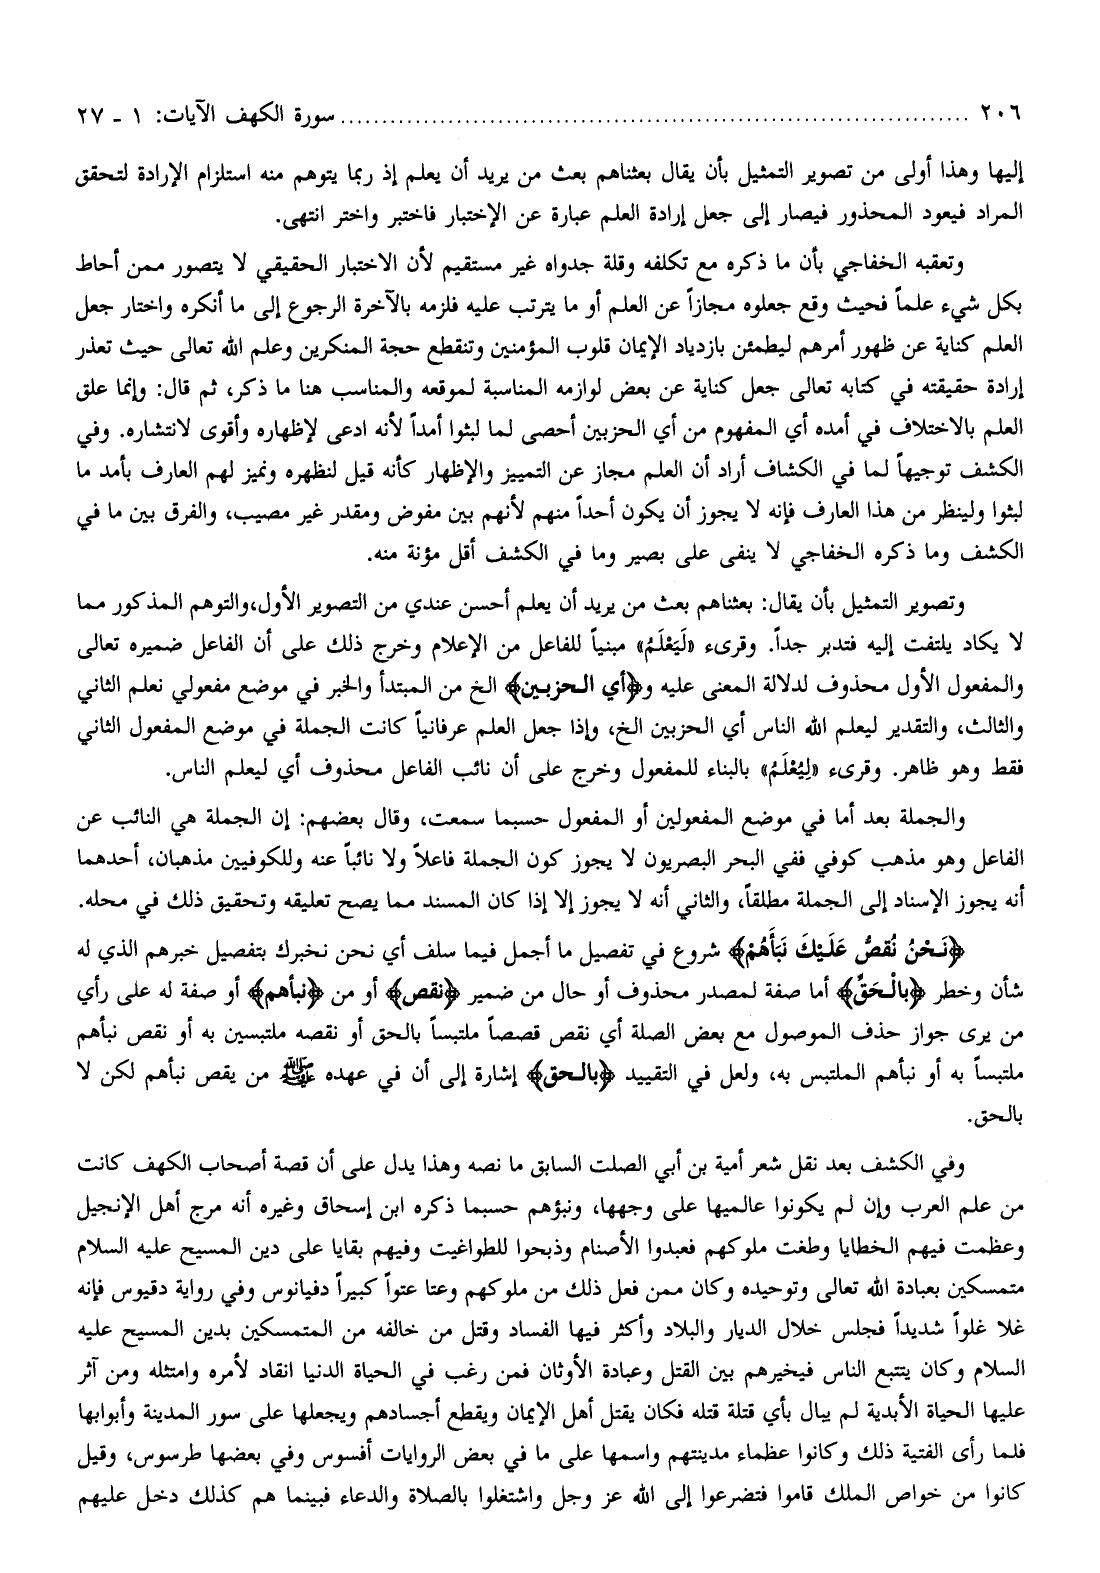 ٢٠٦ ........................................................................ سورة الكهف الآيات: ١ - ٢٧
إليها وهذا أولى من تصوير التمثيل بأن يقال بعثناهم بعث من يريد أن يعلم إذ ربما يتوهم منه استلزام الإرادة لتحقق
المراد فيعود المحذور فيصار إلى جعل إرادة العلم عبارة عن الإختبار فاختبر واختر انتهى.
وتعقبه الخفاجي بأن ما ذكره مع تكلفه وقلة جدواه غير مستقيم لأن الاختبار الحقيقي لا يتصور ممن أحاط
بكل شيء علماً فحيث وقع جعلوه مجازاً عن العلم أو ما يترتب عليه فلزمه بالآخرة الرجوع إلى ما أنكره واختار جعل
العلم كناية عن ظهور أمرهم ليطمئن بازدياد الإيمان قلوب المؤمنين وتنقطع حجة المنكرين وعلم الله تعالى حيث تعذر
إرادة حقيقته في كتابه تعالى جعل كناية عن بعض لوازمه المناسبة لموقعه والمناسب هنا ما ذكر، ثم قال: وإنما علق
العلم بالاختلاف في أمده أي المفهوم من أي الحزبين أحصى لما لبثوا أمداً لأنه ادعى لإظهاره وأقوى لانتشاره. وفي
الكشف توجيهاً لما في الكشاف أراد أن العلم مجاز عن التمييز والإظهار كأنه قيل لنظهره ونميز لهم العارف بأمد ما
لبثوا ولينظر من هذا العارف فإنه لا يجوز أن يكون أحداً منهم لأنهم بين مفوض ومقدر غير مصيب، والفرق بين ما في
الكشف وما ذكره الخفاجي لا ينفى على بصير وما في الكشف أقل مؤنة منه.
وتصوير التمثيل بأن يقال: بعثناهم بعث من يريد أن يعلم أحسن عندي من التصوير الأول،والتوهم المذكور مما
لا يكاد يلتفت إليه فتدبر جداً. وقرىء «لَيَعْلَمُ» مبنياً للفاعل من الإعلام وخرج ذلك على أن الفاعل ضميره تعالى
والمفعول الأول محذوف لدلالة المعنى عليه و﴿أي الحزبين﴾ الخ من المبتدأ والخبر في موضع مفعولي نعلم الثاني
والثالث، والتقدير ليعلم الله الناس أي الحزبين الخ، وإذا جعل العلم عرفانياً كانت الجملة في موضع المفعول الثاني
فقط وهو ظاهر. وقرىء «لِيُعْلَمُ» بالبناء للمفعول وخرج على أن نائب الفاعل محذوف أي ليعلم الناس.
والجملة بعد أما في موضع المفعولين أو المفعول حسبما سمعت، وقال بعضهم: إن الجملة هي النائب عن
الفاعل وهو مذهب كوفي ففي البحر البصريون لا يجوز كون الجملة فاعلاً ولا نائباً عنه وللكوفيين مذهبان، أحدهما
أنه يجوز الإسناد إلى الجملة مطلقاً، والثاني أنه لا يجوز إلا إذا كان المسند مما يصح تعليقه وتحقيق ذلك في محله.
﴿نَحْنُ نُقصُّ عَلَيْكَ نَبَأَهُمْ﴾ شروع في تفصيل ما أجمل فيما سلف أي نحن نخبرك بتفصيل خبرهم الذي له
شأن وخطر ﴿بِالْحَقِّ﴾ أما صفة لمصدر محذوف أو حال من ضمير ﴿نقص﴾ أو من ﴿نبأهم﴾ أو صفة له على رأي
من يرى جواز حذف الموصول مع بعض الصلة أي نقص قصصاً ملتبساً بالحق أو نقصه ملتبسين به أو نقص نبأهم
ملتبساً به أو نبأهم الملتبس به، ولعل في التقييد ﴿بالحق﴾ إشارة إلى أن في عهده ﷺ من يقص نبأهم لكن لا
بالحق.
وفي الكشف بعد نقل شعر أمية بن أبي الصلت السابق ما نصه وهذا يدل على أن قصة أصحاب الكهف كانت
من علم العرب وإن لم يكونوا عالميها على وجهها، ونبؤهم حسبما ذكره ابن إسحاق وغيره أنه مرج أهل الإنجيل
وعظمت فيهم الخطايا وطغت ملوكهم فعبدوا الأصنام وذبحوا للطواغيت وفيهم بقايا على دين المسيح عليه السلام
متمسكين بعبادة الله تعالى وتوحيده وكان ممن فعل ذلك من ملوكهم وعتا عتواً كبيراً دفيانوس وفي رواية دقيوس فإنه
غلا غلواً شديداً فجلس خلال الديار والبلاد وأكثر فيها الفساد وقتل من خالفه من المتمسكين بدين المسيح عليه
السلام وكان يتتبع الناس فيخيرهم بين القتل وعبادة الأوثان فمن رغب في الحياة الدنيا انقاد لأمره وامتثله ومن آثر
عليها الحياة الأبدية لم يبال بأي قتلة قتله فكان يقتل أهل الإيمان ويقطع أجسادهم ويجعلها على سور المدينة وأبوابها
فلما رأى الفتية ذلك وكانوا عظماء مدينتهم واسمها على ما في بعض الروايات أفسوس وفي بعضها طرسوس، وقيل
كانوا من خواص الملك قاموا فتضرعوا إلى الله عز وجل واشتغلوا بالصلاة والدعاء فبينما هم كذلك دخل عليهم